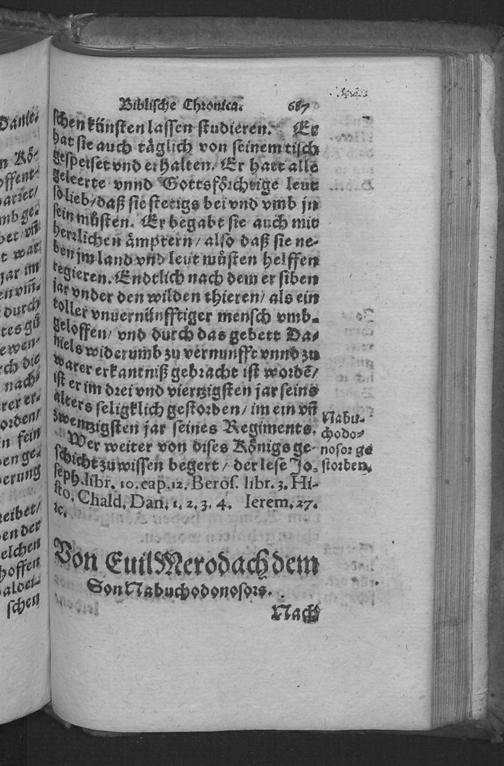 Biblische Chronica. 687
schen künsten lassen studieren. Er
hat sie auch täglich von seinem tisch
gespeiset vnd erhalten/ Er hatt alle
geleerte vnnd Gottsförchtige leut
so lieb/ daß sie stetigs bei vnd vmb jn
sein müsten. Er begabt sie auch mit
herrlichen ämptern/ also daß sie ne-
ben jm land vnd leut müsten helffen
regieren. Endtlich nach dem er siben
jar vnder den wilden thieren/ als ein
toller vnuernünfftiger mensch vmb-
geloffen/ vnd durch das gebett Da-
niels widerumb zu vernunfft vnnd zu
warer erkantniß gebracht ist wordẽ/
ist er im drei vnd viertzigsten jar seins
alters seligklich gestorden/ im ein vñ
zwentzigsten jar seines Regiments.
Wer weiter von dises Königs ge-
schicht zu wissen begert/ der lese Jo-
seph. libr. 10. cap. 12. Beros. libr. 3. Hi-
sto. Chald. Dan. 1. 2. 3. 4. Ierem. 27.
ꝛc.
Nabu-
chodo-
nosor ge
storben.
Von Euil Merodach dem
Son Nabuchodonosors.
Nach